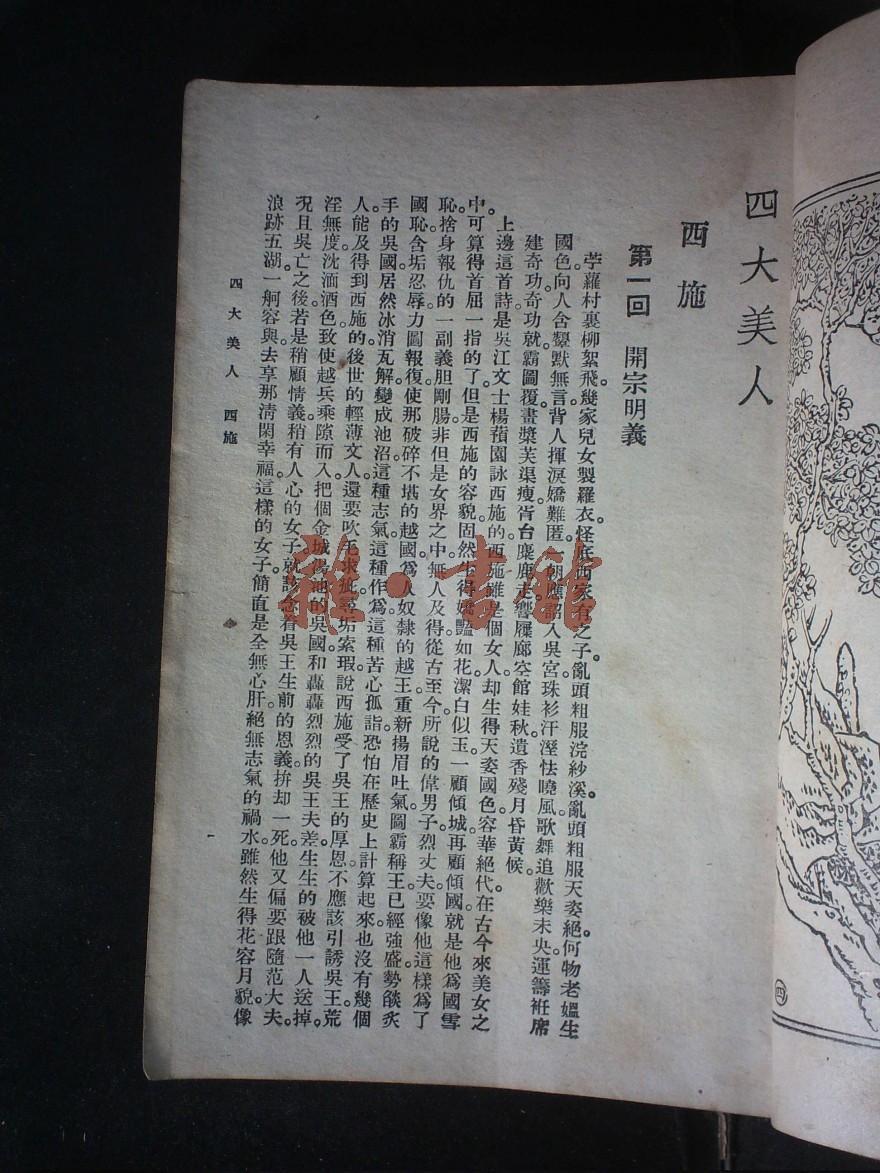 四大美人
西施
第一回　開宗明義
苧蘿村裏柳絮飛。幾家兒女製羅衣。怪底西家有之子。亂頭粗服浣紗溪。亂頭粗服天姿絕。何物老媼生
國色。向人含顰默無言。背人揮淚嬌難匿。一朝應詔入吳宮。珠衫汗溼怯曉風。歌舞追歡樂未央。運籌袵席
建奇功。奇功就霸圖覆。畫槳芙渠瘦。胥台麋鹿走。響屧廊空館娃秋。遺香殘月昏黃候。
上邊這首詩。是吳江文士楊蘋園詠西施的。西施雖是個女人。却生得天姿國色。容華絕代。在古今來美女之
中。可算得首屈一指的了。但是西施的容貌。固然生得嬌豔如花。潔白似玉。一顧傾城。再顧傾國。就是他爲國雪
恥。捨身報仇的一副義胆剛腸。非但是女界之中。無人及得。從古至今。所說的偉男子。烈丈夫。要像他這樣爲了
國恥。含垢忍辱。力圖報復。使那破碎不堪的越國。爲人奴隸的越王。重新揚眉吐氣。圖霸稱王。已經強盛。勢燄炙
手的吳國。居然冰消瓦解。變成池沼。這種志氣。這種作爲。這種苦心孤詣。恐怕在歷史上計算起來。也沒有幾個
人。能及得到西施的。後世的輕薄文人。還要吹毛求疵。尋垢索瑕。說西施受了吳王的厚恩。不應該引誘吳王。荒
淫無度。沈湎酒色。致使越兵乘隙而入。把個金城湯池的吳國。和轟轟烈烈的吳王夫差。生生的被他一人送掉。
况且吳亡之後。若是稍顧情義。稍有人心的女子。就該念着吳王生前的恩義。拚却一死。他又偏要跟隨范大夫。
浪跡五湖。一舸容與。去享那清閑幸福。這樣的女子。簡直是全無心肝。絕無志氣的禍水。雖然生得花容月貌。像
四大美人　西施
一
四
雜·書館